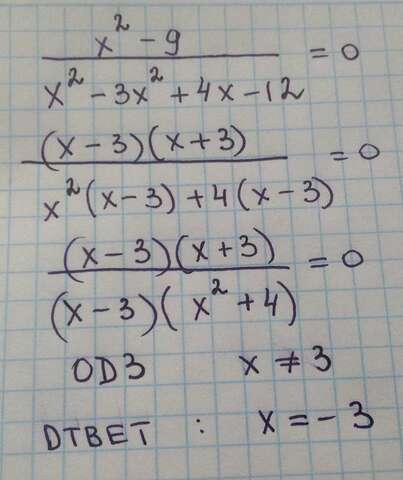 x² - 9
———— = 0
x² - 3x² + 4x - 12
(x - 3)(x + 3)
———— = 0
x²(x - 3) + 4(x - 3)
(x - 3)(x + 3)
———— = 0
(x - 3)(x² + 4)
ОДЗ x ≠ 3
ОТВЕТ : x = - 3